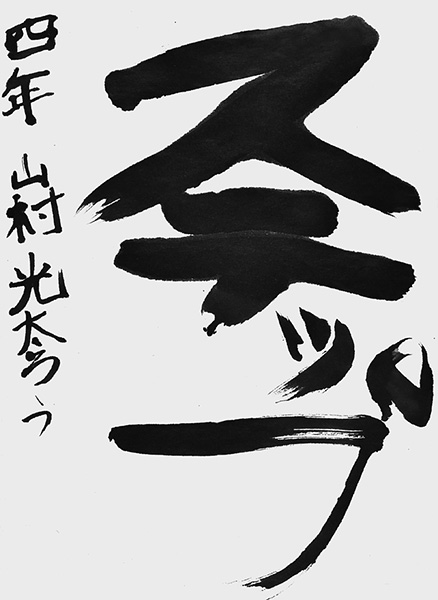 ステップ
四年 山村 光太ろう